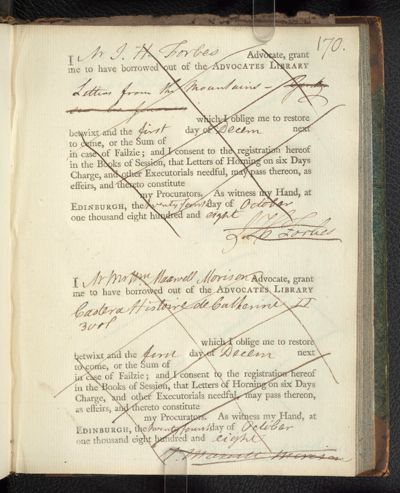 170.
I Mr J. H. Forbes Advocate, grant
me to have borrowed out of the ADVOCATES LIBRARY
Letters from the Mountains –
which I oblige me to restore
betwixt and the first day of Decem next
to come, or the Sum of
in case of Failzie; and I consent to the registration hereof
in the Books of Session, that Letters of Horning on six Days
Charge, and other Executorials needful, may pass thereon, as
effeirs, and thereto constitute
my Procurators. As witness my Hand, at
EDINBURGH, the twenty fourth day of October
one thousand eight hundred and eight
J H Forbes
I Mr Wm Maxwell Morison Advocate, grant
me to have borrowed out of the ADVOCATES LIBRARY
Castera Histoire de Catharine II
3 vol
which I oblige me to restore
betwixt and the first day of Decem next
to come, or the Sum of
in case of Failzie; and I consent to the registration hereof
in the Books of Session, that Letters of Horning on six Days
Charge, and other Executorials needful, may pass thereon,
as effeirs, and thereto constitute
my Procurators. As witness my Hand, at
EDINBURGH, the twenty fourth day of October
one thousand eight hundred and eight
W. Maxwell Morison